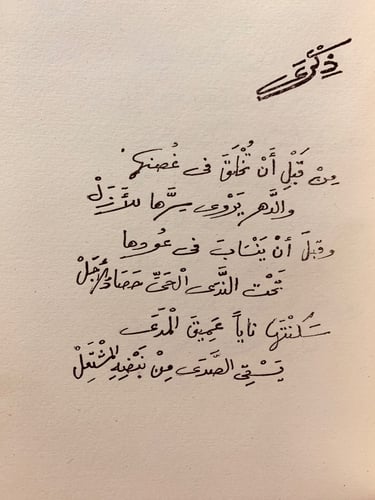 ذِكْرَى
مِنْ قَبْلِ أَنْ تُخْلَقَ فى غُصنها
والدَّهر يَرْوى سِرَّها للأَزَلْ
وقبلَ أنْ ينْسَابَ فى عُودها
تَحْتَ الثَّرى الْحَىِّ حَصَادُ الأَجَلْ
سَكَنْتَها ناياً عَمِيقَ الْمَدَى
يَسْقِى الصَّدَى مِنْ نَبْضِهِ المْشْتَعِلْ